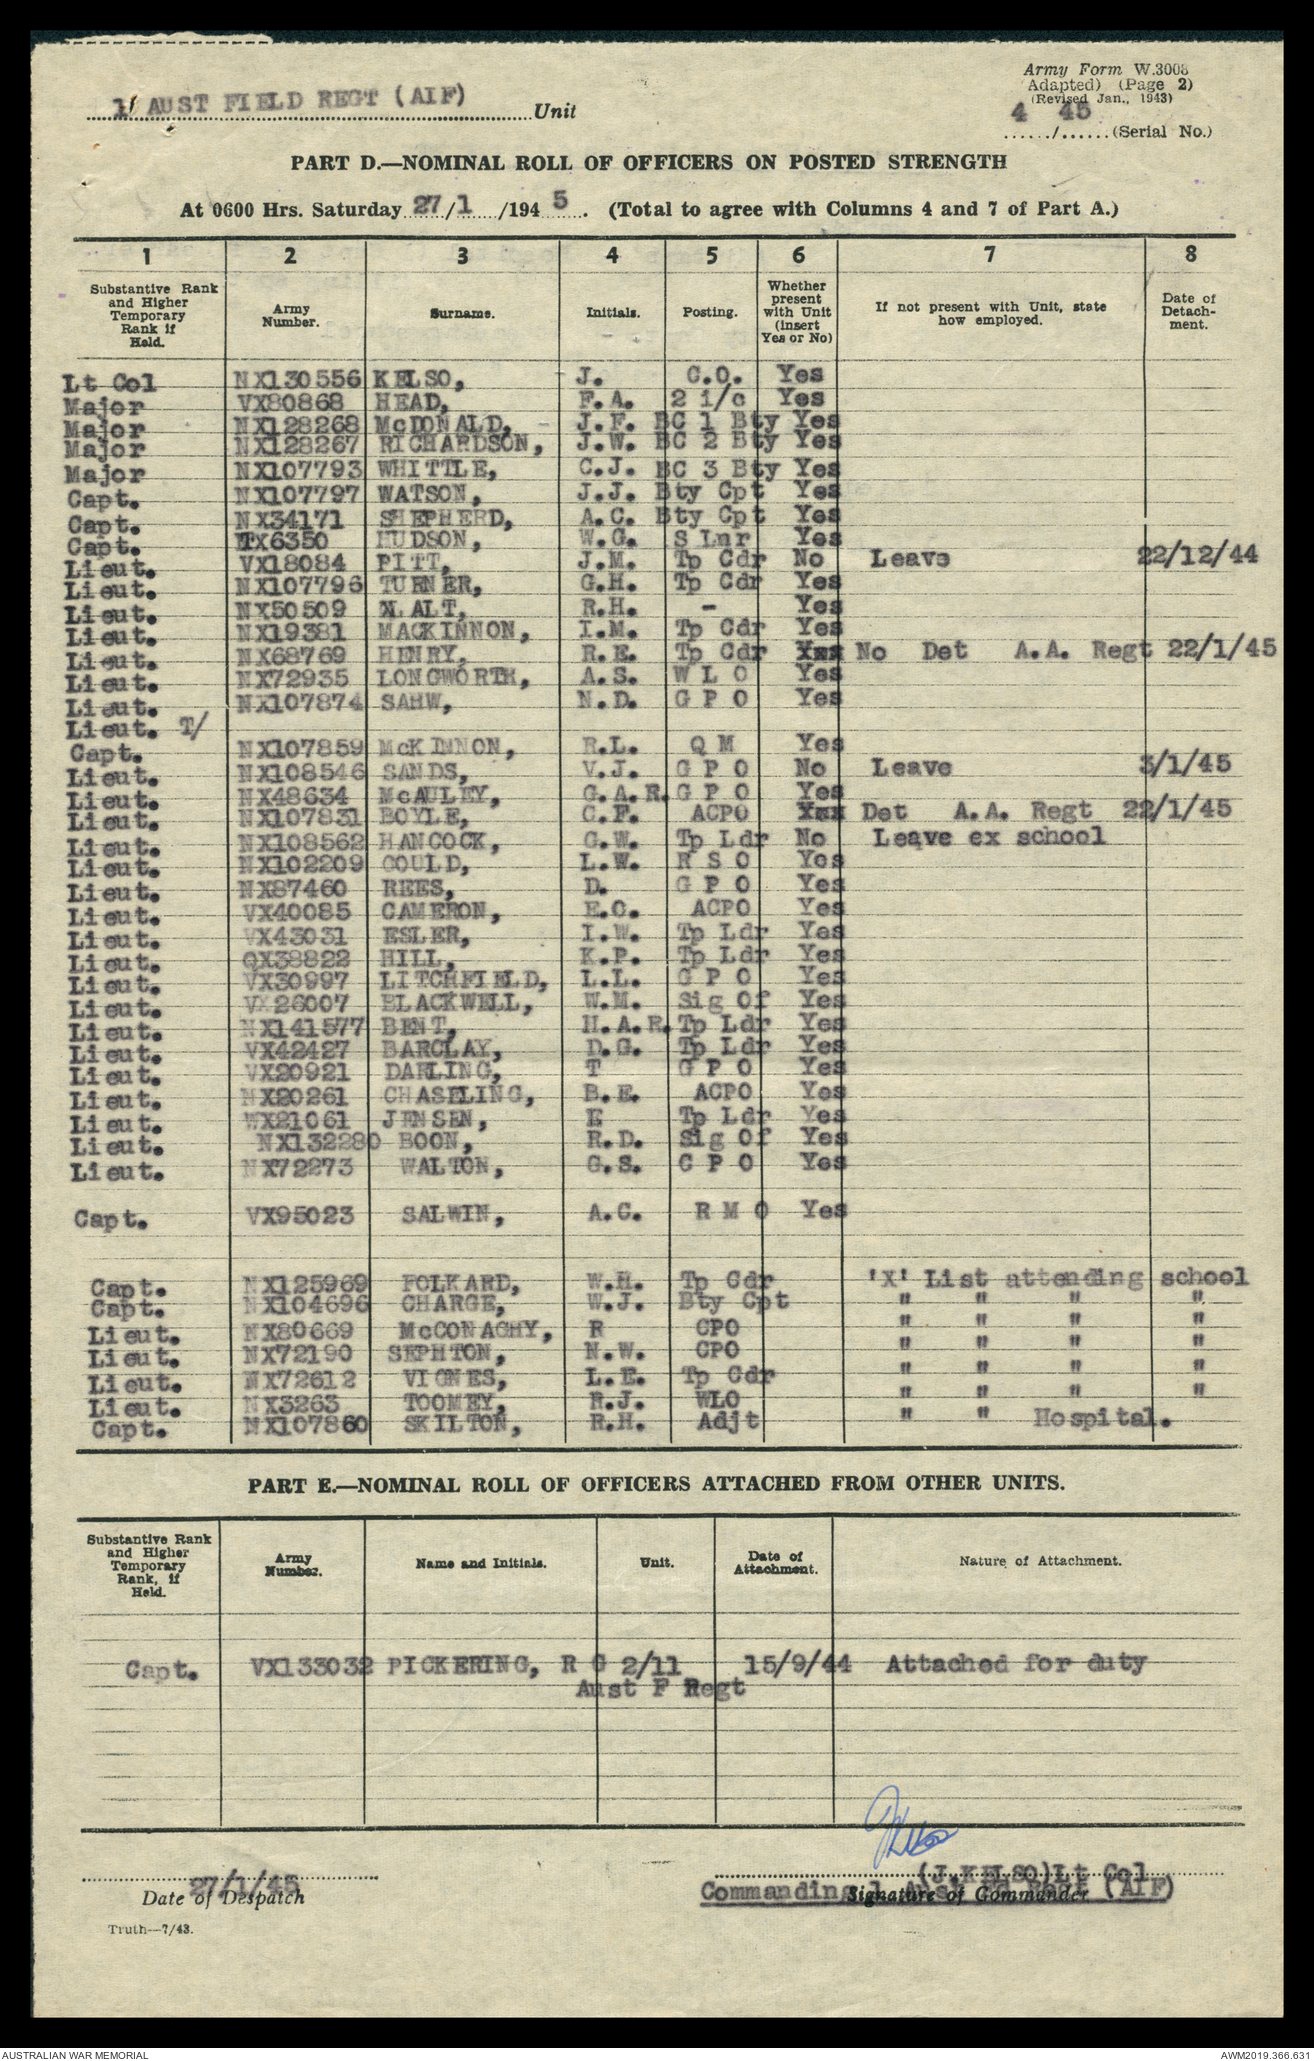 1 AUST FIELD REGT (AIF) Unit
Army Form W.3008
Adapted) (Page 2)
(Revised Jan., 1943)
4 45
....../......(Serial No.)
PART D.—NOMINAL ROLL OF OFFICERS ON POSTED STRENGTH
At 0600 Hrs. Saturday 27/1/1945. (Total to agree with Columns 4 and 7 of Part A.)
1 2 3 4 5 6 7 8
Substantive Rank and Higher Temporary Rank if Held. Army Number. Surname. Initials. Posting. Whether present with Unit (insert Yes or No) If not present with Unit, state how employed. Date of Detach-ment.
Lt Col NX130556 KELSO, J. C.O. Yes
Major VX80868 HEAD, F.A. 2 i/c Yes
Major NX128268 McDONALD, J.F. BC 1 Bty Yes
Major NX128267 RICHARDSON, J.W. BC 2 Bty Yes
Major NX107793 WHITTLE, C.J. BC 3 Bty Yes
Capt. NX107797 WATSON, J.J. Bty Cpt Yes
Capt. NX34171 SHEPHERD, A.C. Bty Cpt Yes
Capt. TX6350 HUDSON, W.G. S Lnr Yes
Lieut. VX18084 PITT, J.M. Tp Cdr No Leave 22/12/44
Lieut. NX107796 TURNER, G.H. Tp Cdr Yes
Lieut. NX50509 ALT, R.H. - Yes
Lieut. NX19381 MACKINNON, I.M. Tp Cdr Yes
Lieut. NX68769 HENRY, R.E. Tp Cdr No Det A.A. Regt 22/1/45
Lieut. NX72935 LONGWORTH, A.S. W L O Yes
Lieut. NX107874 SAHW, N.D. G P O Yes
Lieut. T/
Capt. NX107859 McKINNON, R.L. Q M Yes
Lieut. NX108546 SANDS, V.J. G P O No Leave 3/1/45
Lieut. NX48634 McAULEY, G.A.R. G P O Yes
Lieut. NX107831 BOYLE, C.F. ACPO Det A.A. Regt 22/1/45
Lieut. NX108562 HANCOCK, G.W. Tp Ldr No Leave ex school
Lieut. NX102209 GOULD, L.W. R S O Yes
Lieut. NX87460 REES, D. G P O Yes
Lieut. VX40085 CAMERON, E.C. ACPO Yes
Lieut. VX43031 ESLER, I.W. Tp Ldr Yes
Lieut. QX38822 HILL, K.P. Tp Ldr Yes
Lieut. VX30997 LITCHFIELD, L.L. G P O Yes
Lieut. VX26007 BLACKWELL, W.M. Sig Of Yes
Lieut. NX141577 BENT, H.A.R. Tp Ldr Yes
Lieut. VX42427 BARCLAY, D.G. Tp Ldr Yes
Lieut. VX20921 DARLING, T G P O Yes
Lieut. NX20261 CHASELING, B.E. ACPO Yes
Lieut. WX21061 JENSEN, E Tp Ldr Yes
Lieut. NX132280 BOON, R.D. Sig Of Yes
Lieut. NX72273 WALTON, G.S. C P O Yes
Capt. VX95023 SALWIN, A.C. R M O Yes
Capt. NX125969 FOLKARD, W.H. Tp Cdr 'X' List attending school
Capt. NX104696 CHARGE, W.J. Bty Cpt " " " "
Lieut. NX80669 McCONAGHY, R CPO " " " "
Lieut. NX72190 SEPHTON, N.W. CPO " " " "
Lieut. NX72612 VIGNES, L.E. Tp Cdr " " " "
Lieut. NX3263 TOOMEY, R.J. WLO " " " "
Capt. NX107860 SKILTON, R.H. Adjt " " Hospital.
PART E.—NOMINAL ROLL OF OFFICERS ATTACHED FROM OTHER UNITS.
Substantive Rank and Higher Temporary Rank, if Held. Army Number. Name and Initials. Unit. Date of Attachment. Nature of Attachment.
Capt. VX133032 PICKERING, R G 2/11 15/9/44 Attached for duty
Aust F Regt
27/1/45
Date of Despatch
(J.KELSO)Lt Col
Commanding 1 Aust Fd Regt (AIF)
Signature of Commander
Truth—7/43.
AUSTRALIAN WAR MEMORIAL AWM2019.366.631